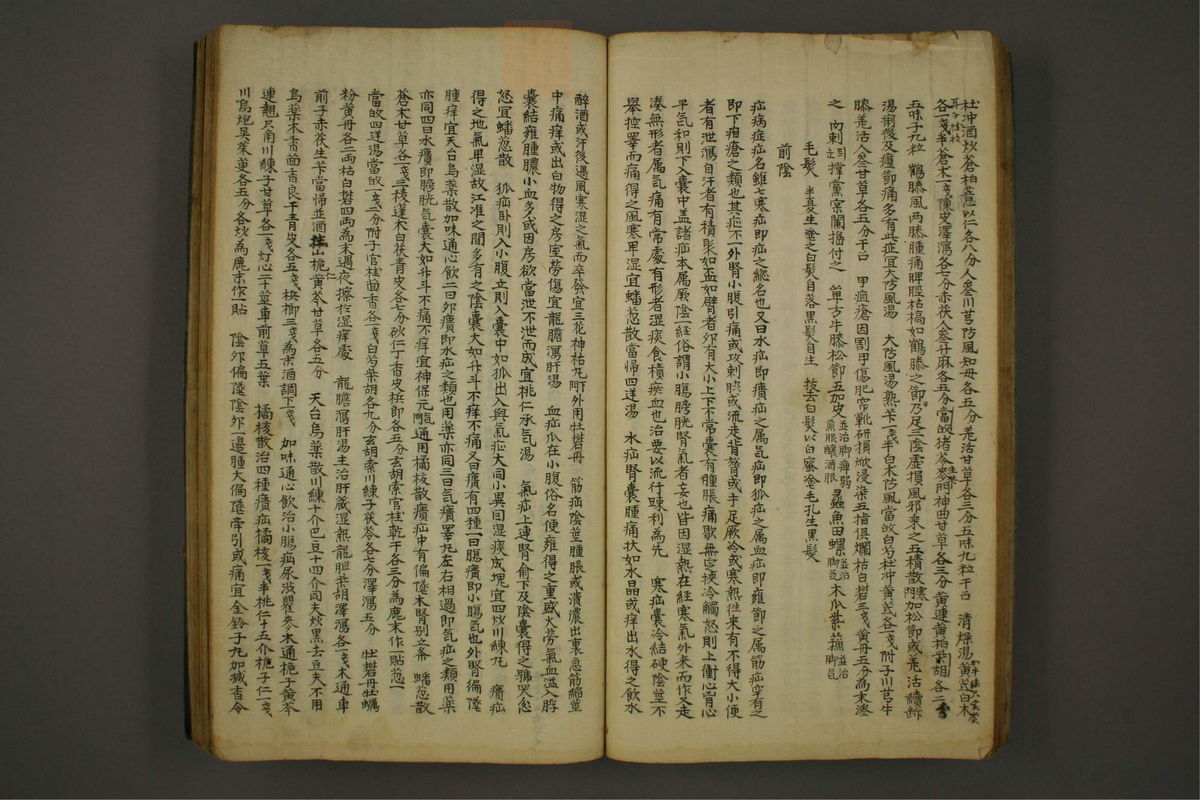 杜冲酒炒蒼柏薏以仁各八分人參川芎防風知母各五分羌活甘草各三分五味九粒干召 清燥湯黃芪白朮
各一戔半蒼朮一戔陳皮澤瀉各七分赤茯人參升麻各五分當皈猪苓麥門神曲甘草各三分黃連黃柏柴胡各二
五味子九粒 鶴膝風兩膝腫痛脾脛枯槁如鶴膝之節乃足三陰虛損風邪來之五積散加松節或羌活續斷
湯痢後及癧節痛多有此症宜大防風湯 大防風湯熟芐一戔半白朮防風當皈白芍杜冲黃芪各一戔附子川芎牛
膝羌活人參甘草各五分干召 甲疽瘡因割甲傷肥窄靴研損㿂浸染五指俱爛枯白礬三戔黃丹五分為末塗
之 內刺 付之 單方牛膝松節五加皮並治脚痺弱 蠡魚田螺並治脚氣木瓜紫蘇並治脚氣
毛髮 半夏生塗之白髮自落黑髮自生 拔去白髮以白蜜塗毛孔生黑髮
前陰
疝病症疝名雖七寒疝即疝之總名也又曰水疝即㿗疝之属氣疝即狐疝之属血疝即癰節之属筋疝罕有之
即下疳瘡之類也其疝不一外腎小腹引痛或攻刺脇或流走背膂或手足厥冷或寒熱往來有不得大小便
者有泄瀉自汗者有積聚如盃如臂者外有大小上下不常囊有腫脹痛歇無定挾冷觸怒則上衝心胃心
平氣和則下入囊中盖諸疝本属厥陰一經俗謂小膓膀胱腎氣者妄也皆因湿熱在經寒氣外來而作又走
湊無形者属氣痛有常處有形者湿痰食積瘀血也治要以流行疎利為先 寒疝囊冷結硬陰莖不
舉控睪而痛得之風寒卑湿宜蟠葱散當帰四逆湯 水疝腎囊腫痛状如水晶或痒出水得之飲水
醉酒或汗後遇風寒湿之氣而卒發宜三花神祐丸下外用牡礬丹 筋疝陰莖腫脹或潰膿出裏急筋縮莖
中痛痒或出白物得之房室勞傷宜龍膽瀉肝湯 血疝瓜在小腹俗名便癰得之重感大勞氣血溢入脬
囊結癰腫膿小血多或因房欲當泄不泄而成宜桃仁承氣湯 氣疝上連腎俞下及陰囊得之號哭忿
怒宜蟠葱散 狐疝卧則入小腹立則入囊中如狐出入與氣疝大同小異因湿痰成塊宜四炒川練丸 㿗疝
得之地氣卑湿故江淮之間多有之陰囊大如升斗不痒不痛又曰㿗有四種一曰膓㿗即小膓氣也外腎偏墜
腫痒宜天台烏藥散加味通心飲二曰卵㿗即水疝之類也用藥亦同三曰氣㿗睪丸左右相過即氣疝之類用藥
亦同四曰水㿗即膀胱氣囊大如升斗不痛不痒宜神保元通用橘核散㿗疝中有偏墜木腎別立条 蟠葱散
蒼朮甘草各一戔三稜蓬朮白茯青皮各七分砂仁丁香皮梹即各五分玄胡索官桂乾干各三分為麁末作一貼葱一
當皈四逆湯當皈一戔二分附子官桂茴香各一戔白芍柴胡各九分玄胡索川練子茯苓各七分澤瀉五分 牡礬丹牡蠣
粉黃丹各二両枯白礬四両為末遇夜擦於湿痒處 龍膽瀉肝湯主治肝蔵湿熱龍胆柴胡澤瀉各一戔木通車
前子赤茯生芐當帰並酒山梔仁黃芩甘草各五分 天台烏藥散川練十介巴豆十四介同夫炒黑去豆夫不用
烏藥木香茴香良干青皮各五戔梹榔三戔為末酒調下一戔 加味通心飲治小膓疝尿澁瞿麥木通梔子黃芩
連翹只角川練子甘草各一戔灯心二十莖車前草五葉 橘核散治四種㿗疝橘核一戔半桃仁十五介梔子仁一戔
川烏炮吴茱萸各五分各炒為麁末作一貼 陰卵偏墜陰卵一邊腫大偏墜帝引或痛宜金鈴子丸加減香令